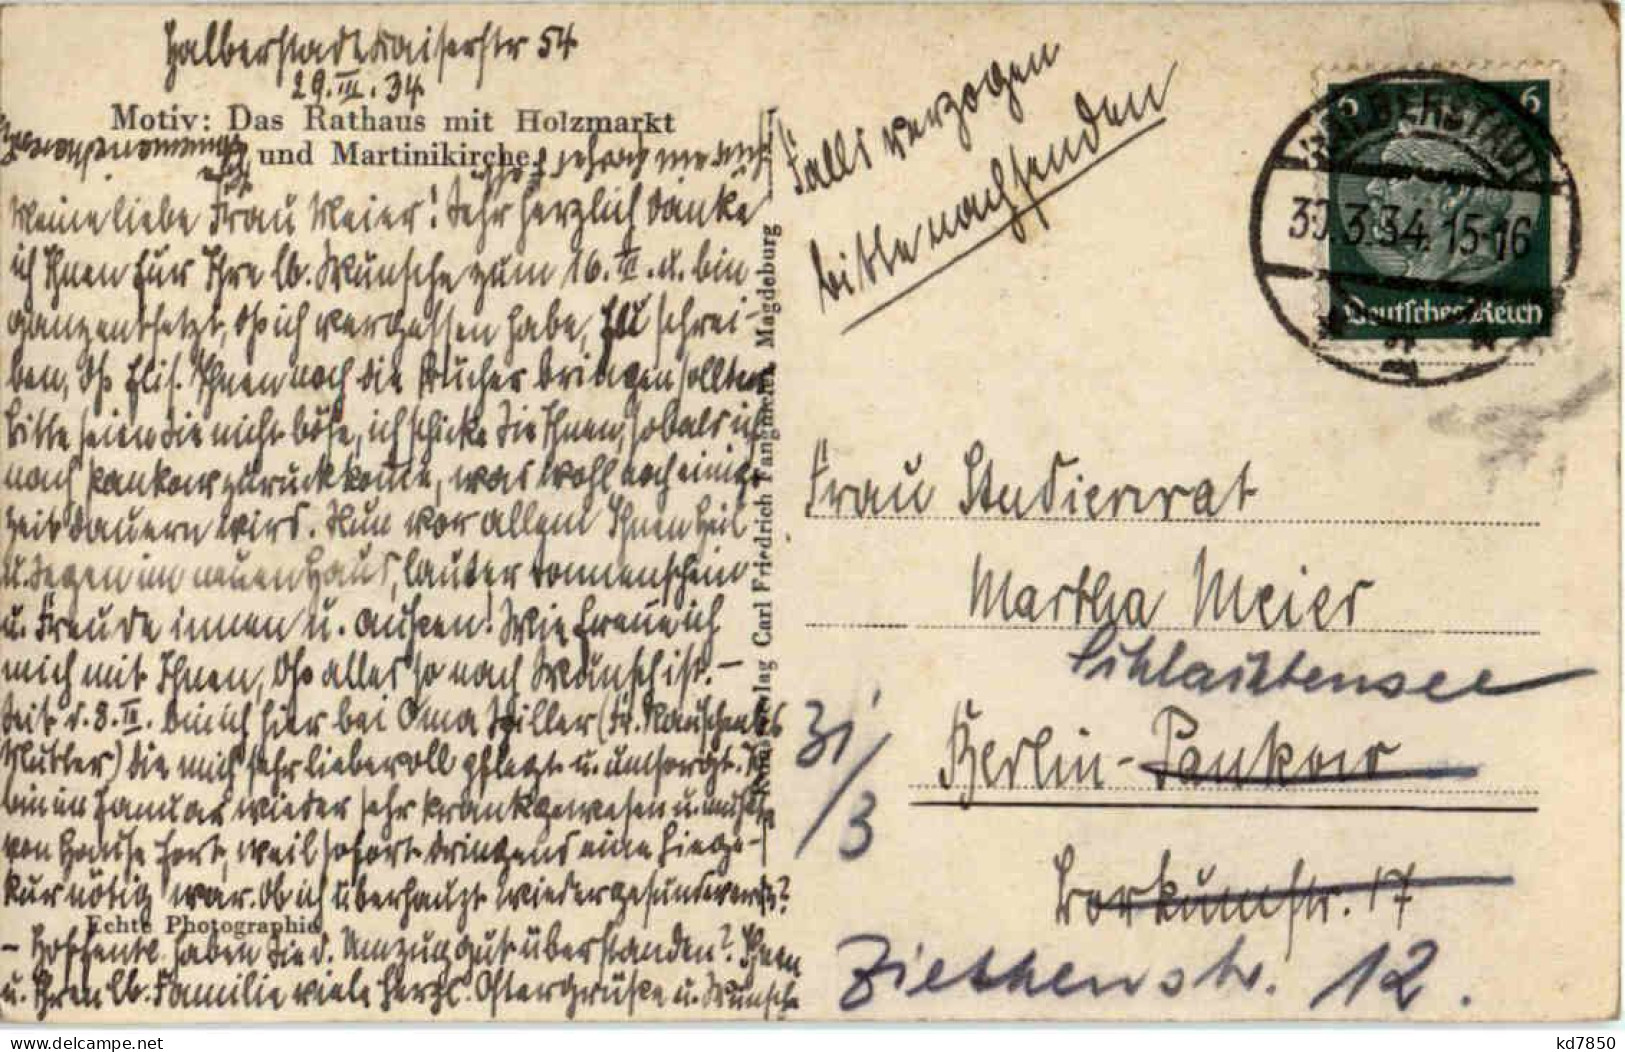 Halberstadt Kaiserstr 54
29. III. 34
Motiv: Das Rathaus mit Holzmarkt
und Martinikirche.
Meine liebe Frau Meier! Sehr herzlich danke
ich Ihnen für Ihre lb. Wünsche zum 16. II. u. bin
ganz entsetzt, dß ich vergessen habe, zu schrei-
ben, dß Elis. Ihnen noch die Bücher bringen sollten
Bitte seien Sie nicht böse, ich schicke Sie Ihnen, sobald ich
nach Pankow zurückkomme, was wohl noch einige
Zeit dauern wird. Nun vor allem Ihnen Heil
u. Segen im neuen Haus, lauter Sonnenschein
u. Freude innen u. außen! Wie freue ich
mich mit Ihnen, dß alles so nach Wunsch ist. –
Seit d. 8. II. bin ich hier bei Oma Spiller (Fr.
Mutter) die mich sehr liebevoll pflegt u. umsorgt.
bin im Januar wieder sehr krank gewesen u. mußte
von Hause fort, weil sofort dringend eine Liege-
kur nötig war. Ob ich überhaupt wieder gesund werde?
Echte Photographie
– Hoffentl. haben Sie d. Umzug gut überstanden? Ihnen
u. Ihren lb. Familie viele herzl. Ostergrüße u. Wünsche
Carl Friedrich Fangmeier, Magdeburg
Falls verzogen
bitte nachsenden
6 6
HALBERSTADT
30.3.34. 15-16
Deutsches Reich
Frau Studienrat
Martha Meier
Schlachtensee
Berlin-Pankow
31/3
Borkumstr. 17
Ziethenstr. 12.
kd7850